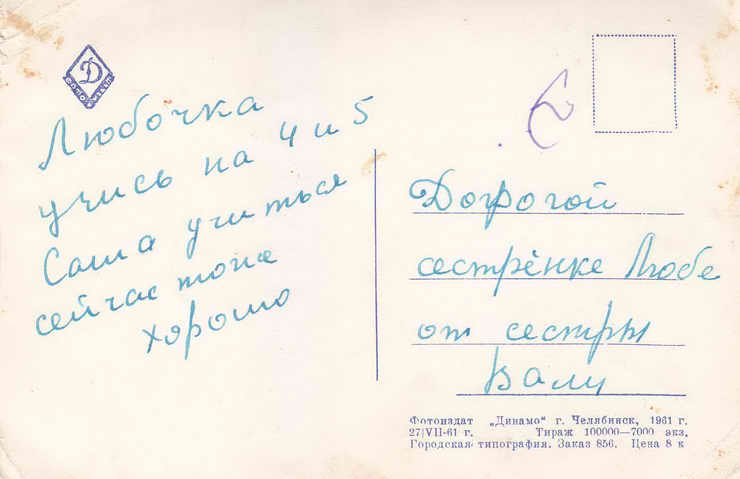 Любочка
учись на 4 и 5
Саша учиться
сейчас тоже
хорошо
Дорогой
сестрёнке Любе
от сестры
Вали
Фотоиздат „Динамо“ г. Челябинск, 1961 г.
27/VII-61 г. Тираж 100000—7000 экз.
Городская типография. Заказ 856. Цена 8 к